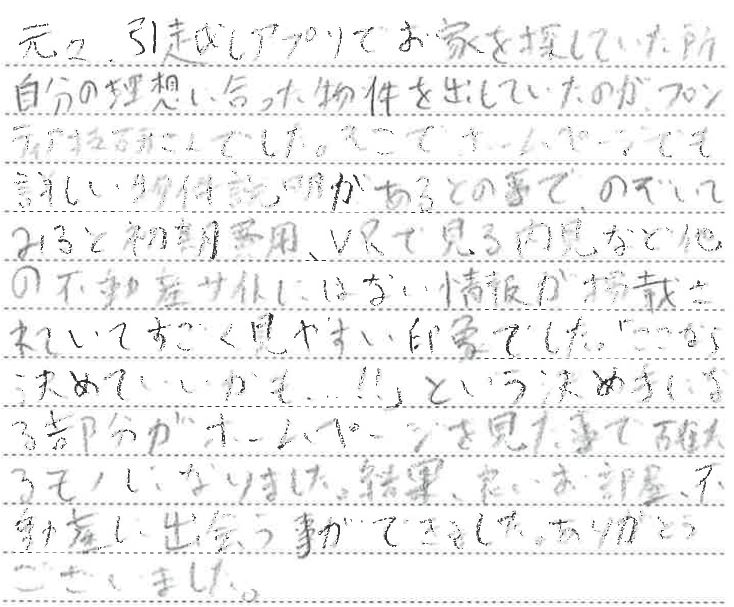 元々、引越しアプリでお家を探していた所
自分の理想に合った物件を出していたのが、フロン
ティア技研さんでした。そこでホームページでも
詳しい物件説明があるとの事で、のぞいて
みると初期費用、VRで見る内見など他
の不動産サイトにはない情報が掲載さ
れていてすごく見やすい印象でした。「ここなら
決めていいかも...!!」という決め手にな
る部分がホームページを見た事で確た
るモノになりました。結果、良いお部屋、不
動産に出会う事ができました。ありがとう
ございました。